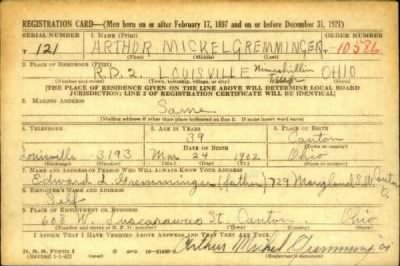 REGISTRATION CARD—(Men born on or after February 17, 1897 and on or before December 31, 1921)
SERIAL NUMBER 1. NAME (Print) ORDER NUMBER
T 121 ARTHUR MICKEL GREMMINGER 10586
(First) (Middle) (Last)
2. PLACE OF RESIDENCE (Print)
R.D.2. LOUISVILLE Nimishillin Twp OHIO
(Number and street) (Town, township, village, or city) (County) (State)
[THE PLACE OF RESIDENCE GIVEN ON THE LINE ABOVE WILL DETERMINE LOCAL BOARD
JURISDICTION; LINE 2 OF REGISTRATION CERTIFICATE WILL BE IDENTICAL]
3. MAILING ADDRESS
Same
(Mailing address if other than place indicated on line 2. If same insert word same)
4. TELEPHONE 5. AGE IN YEARS 6. PLACE OF BIRTH
39 Canton
DATE OF BIRTH (Town or county)
Louisville 3193 Mar 24 1902 Ohio
(Exchange) (Number) (Mo.) (Day) (Yr.) (State or country)
7. NAME AND ADDRESS OF PERSON WHO WILL ALWAYS KNOW YOUR ADDRESS
Edward L Gremminger (father) 729 Maryland S.W. Canton O
8. EMPLOYER'S NAME AND ADDRESS
Self
9. PLACE OF EMPLOYMENT OR BUSINESS
608 W. Tuscarawas St. Canton Ohio
(Number and street or R. F. D. number) (Town) (County) (State)
I AFFIRM THAT I HAVE VERIFIED ABOVE ANSWERS AND THAT THEY ARE TRUE.
D. S. S. Form 1
(Revised 1-5-42) (over)
Arthur Mickel Gremminger